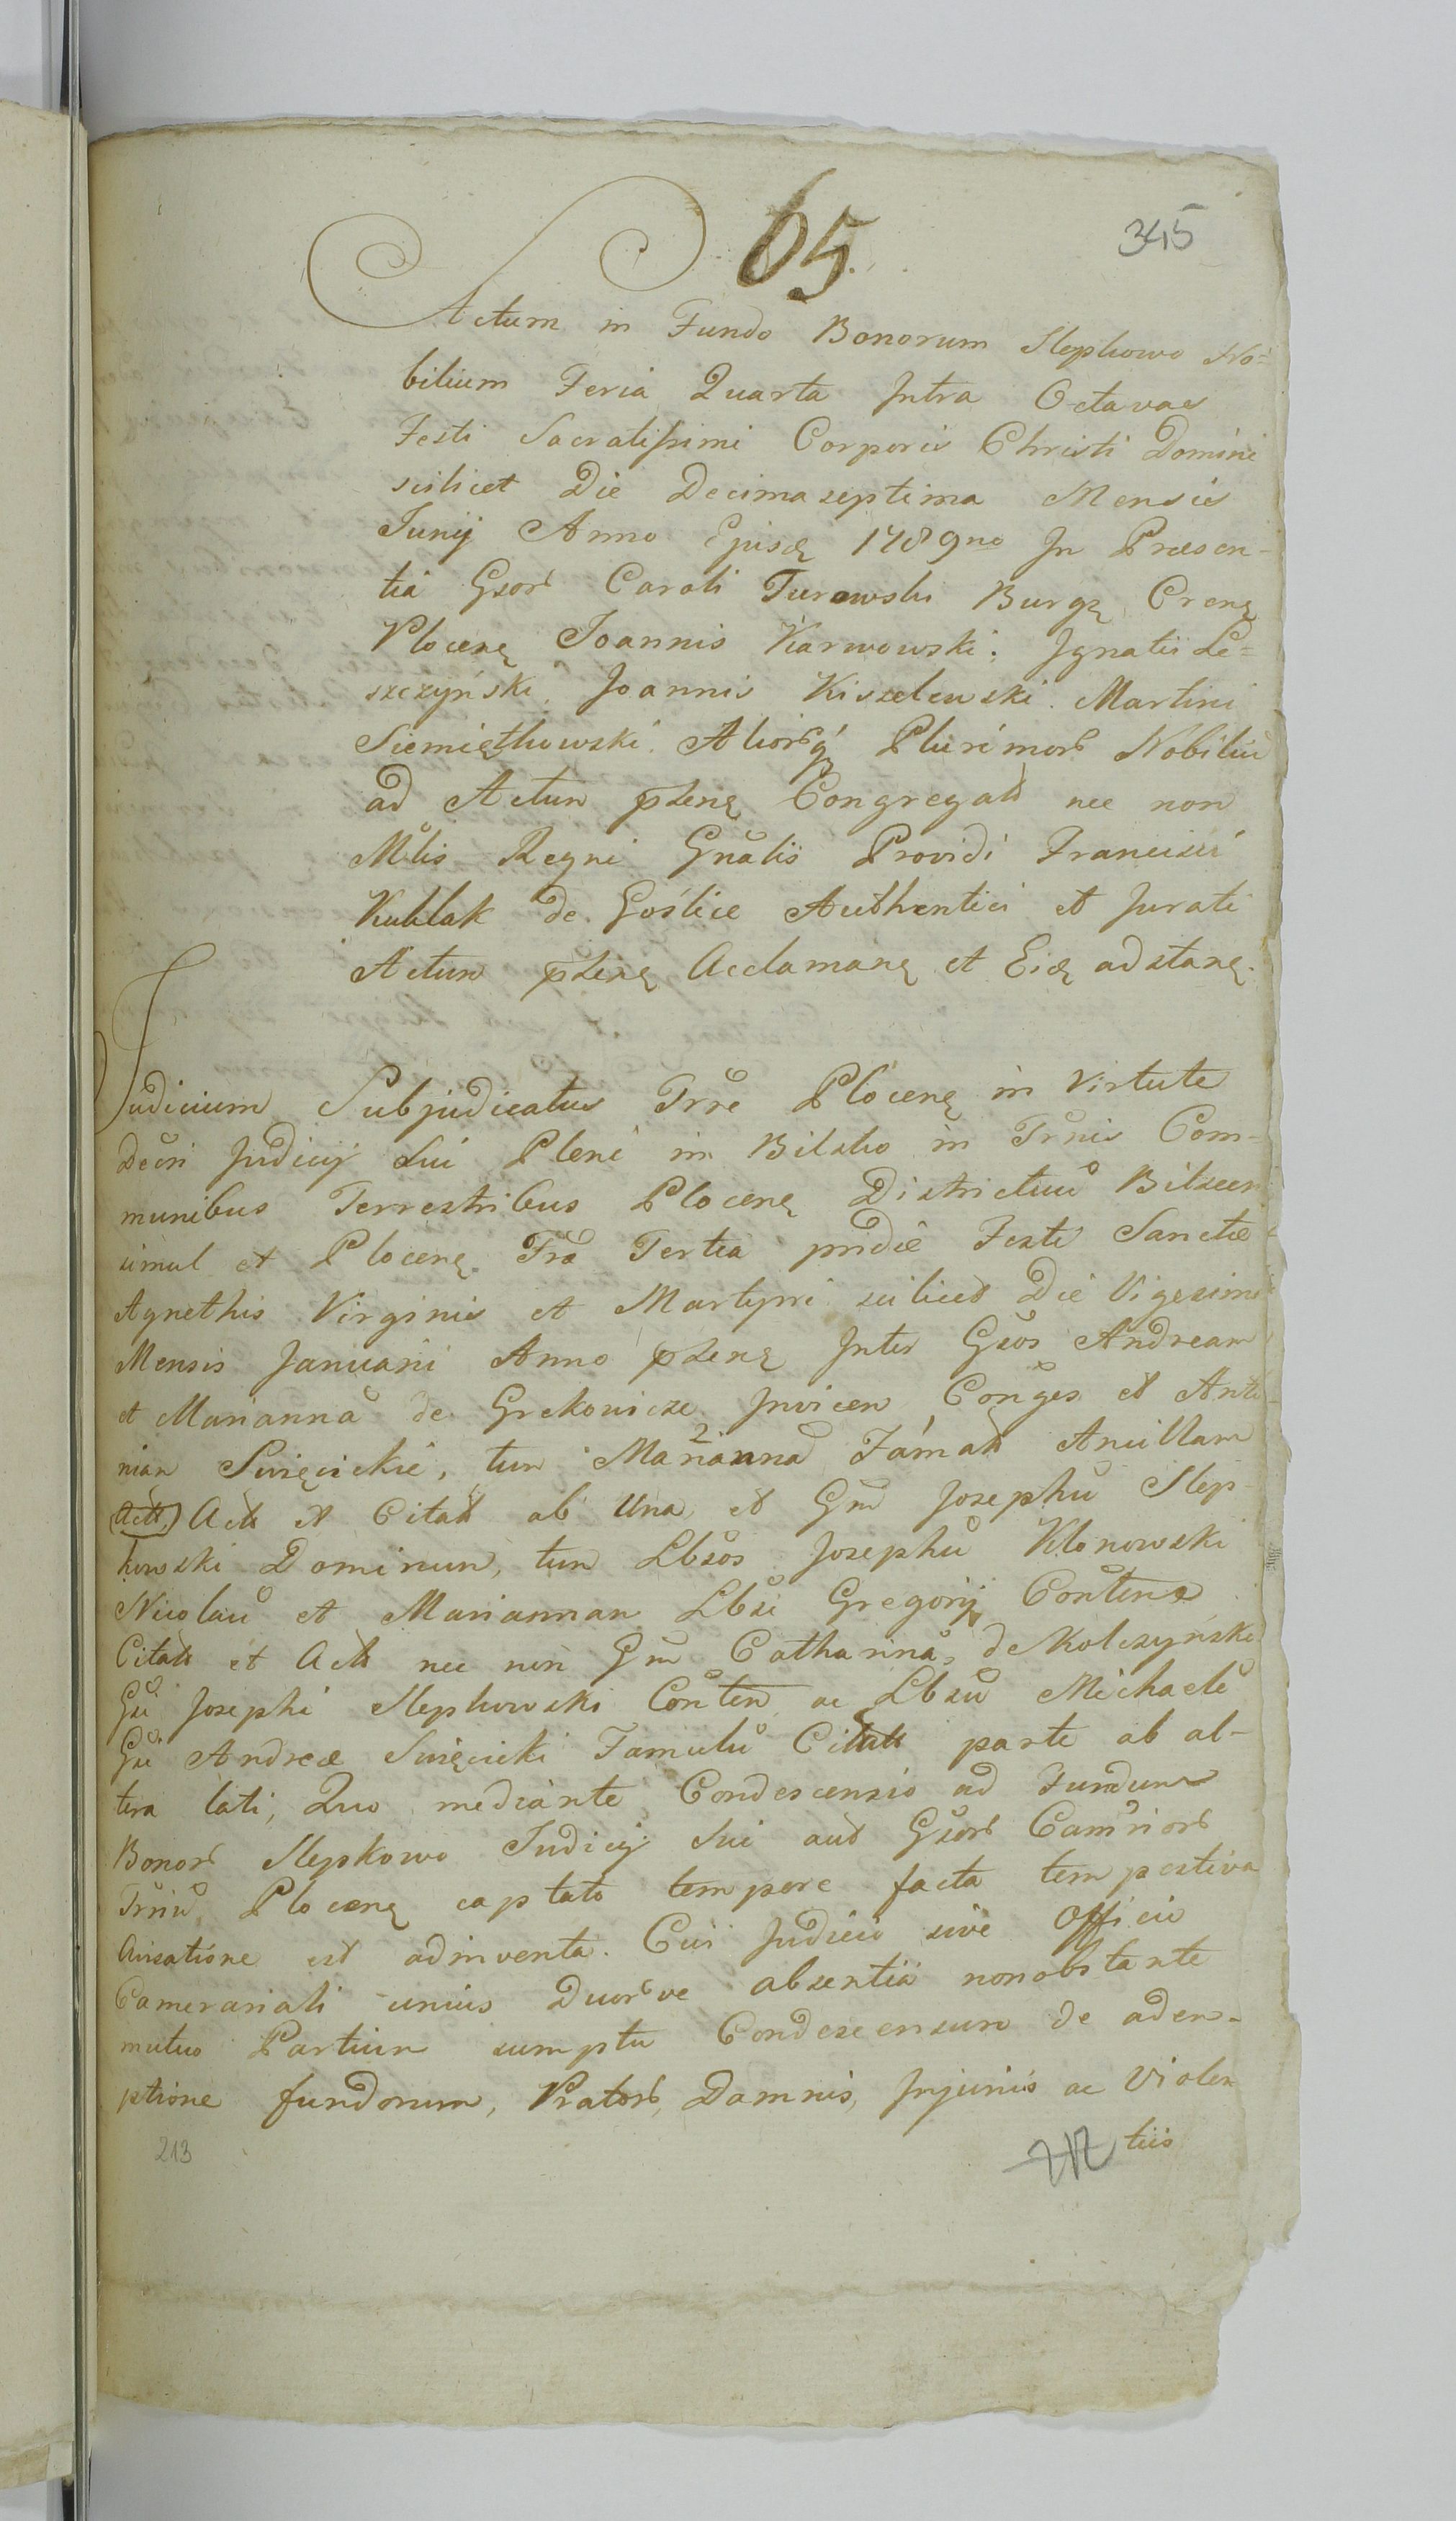 65.
345
Actum in Fundo Bonorum Slepkowo No=
bilium Feria Quarta Intra Octavas
Festi Sacratissimi Corporis Christi Domini
scilicet Die Decima septima Mensis
Junij Anno Ejusdę 1789no In Præsen-
tia Gsorb Caroli Turowski Burgę Crenę
Plocenę Joannis Karwowski, Ignatii Le=
szczyński, Joannis Kiszelewski. Martini
Siemiętkowski. Aliorbq Plurimorb Nobiliū
ad Actum pstenę Congregatt nec non
Mtlis Regni Gnalis Providi Francisci
Kublak de Goślice Authentici et Jurati
Actum pstenę Acclamanę et Eidę adstanę.
Judicium Subjudicatus Trre Plocenę in Virtute
Decri Judicij Sui Pleni in Bilsko in Trnis Com=
munibus Terrestribus Plocenę Districtuū Bilscen
simul et Plocenę. Fra Tertia pridie Festi Sanctæ
Agnethis Virginis et Martyri scilicet Die Vigesima
Mensis Januarii Anno pstenę Inter Gsos Andream
et Mariannā de Grekowicze Invicem Conges et Anto
nian Swięcickie, tum Mariannā 2 Famatt Ancillam
(Actt.) Actt et Citatt ab Una, et Gm Josephū Slep-
kowski Dominum, tum Lbsos Josephū Klonowski
Nicolaū et Mariannam Lbsi Gregorij Conten
Citatt et Actt nec non Gm Catharinā de Kolczyńskie
Gsi Josephi Slepkowski Conten ac Lbsū Michaelē
Gsi Andreæ Swięcicki Famulū Citatt parte ab al-
tera lati, Quo mediante Condescensio ad Fundum
Bonorb Slepkowo Judicij Sui aut Gsorb Camriorb
Trriū Plocenę captato tempore facta tempestiva
Avisatione est adinventa. Cui Judicio sive Officio
Camerariali unius Duorbve absentia nonobstante
mutuo Partium sumptu Condescensum de adem-
ptione fundorum, Pratorb, Damnis, Injuriis ac Violen
tiis
213
212